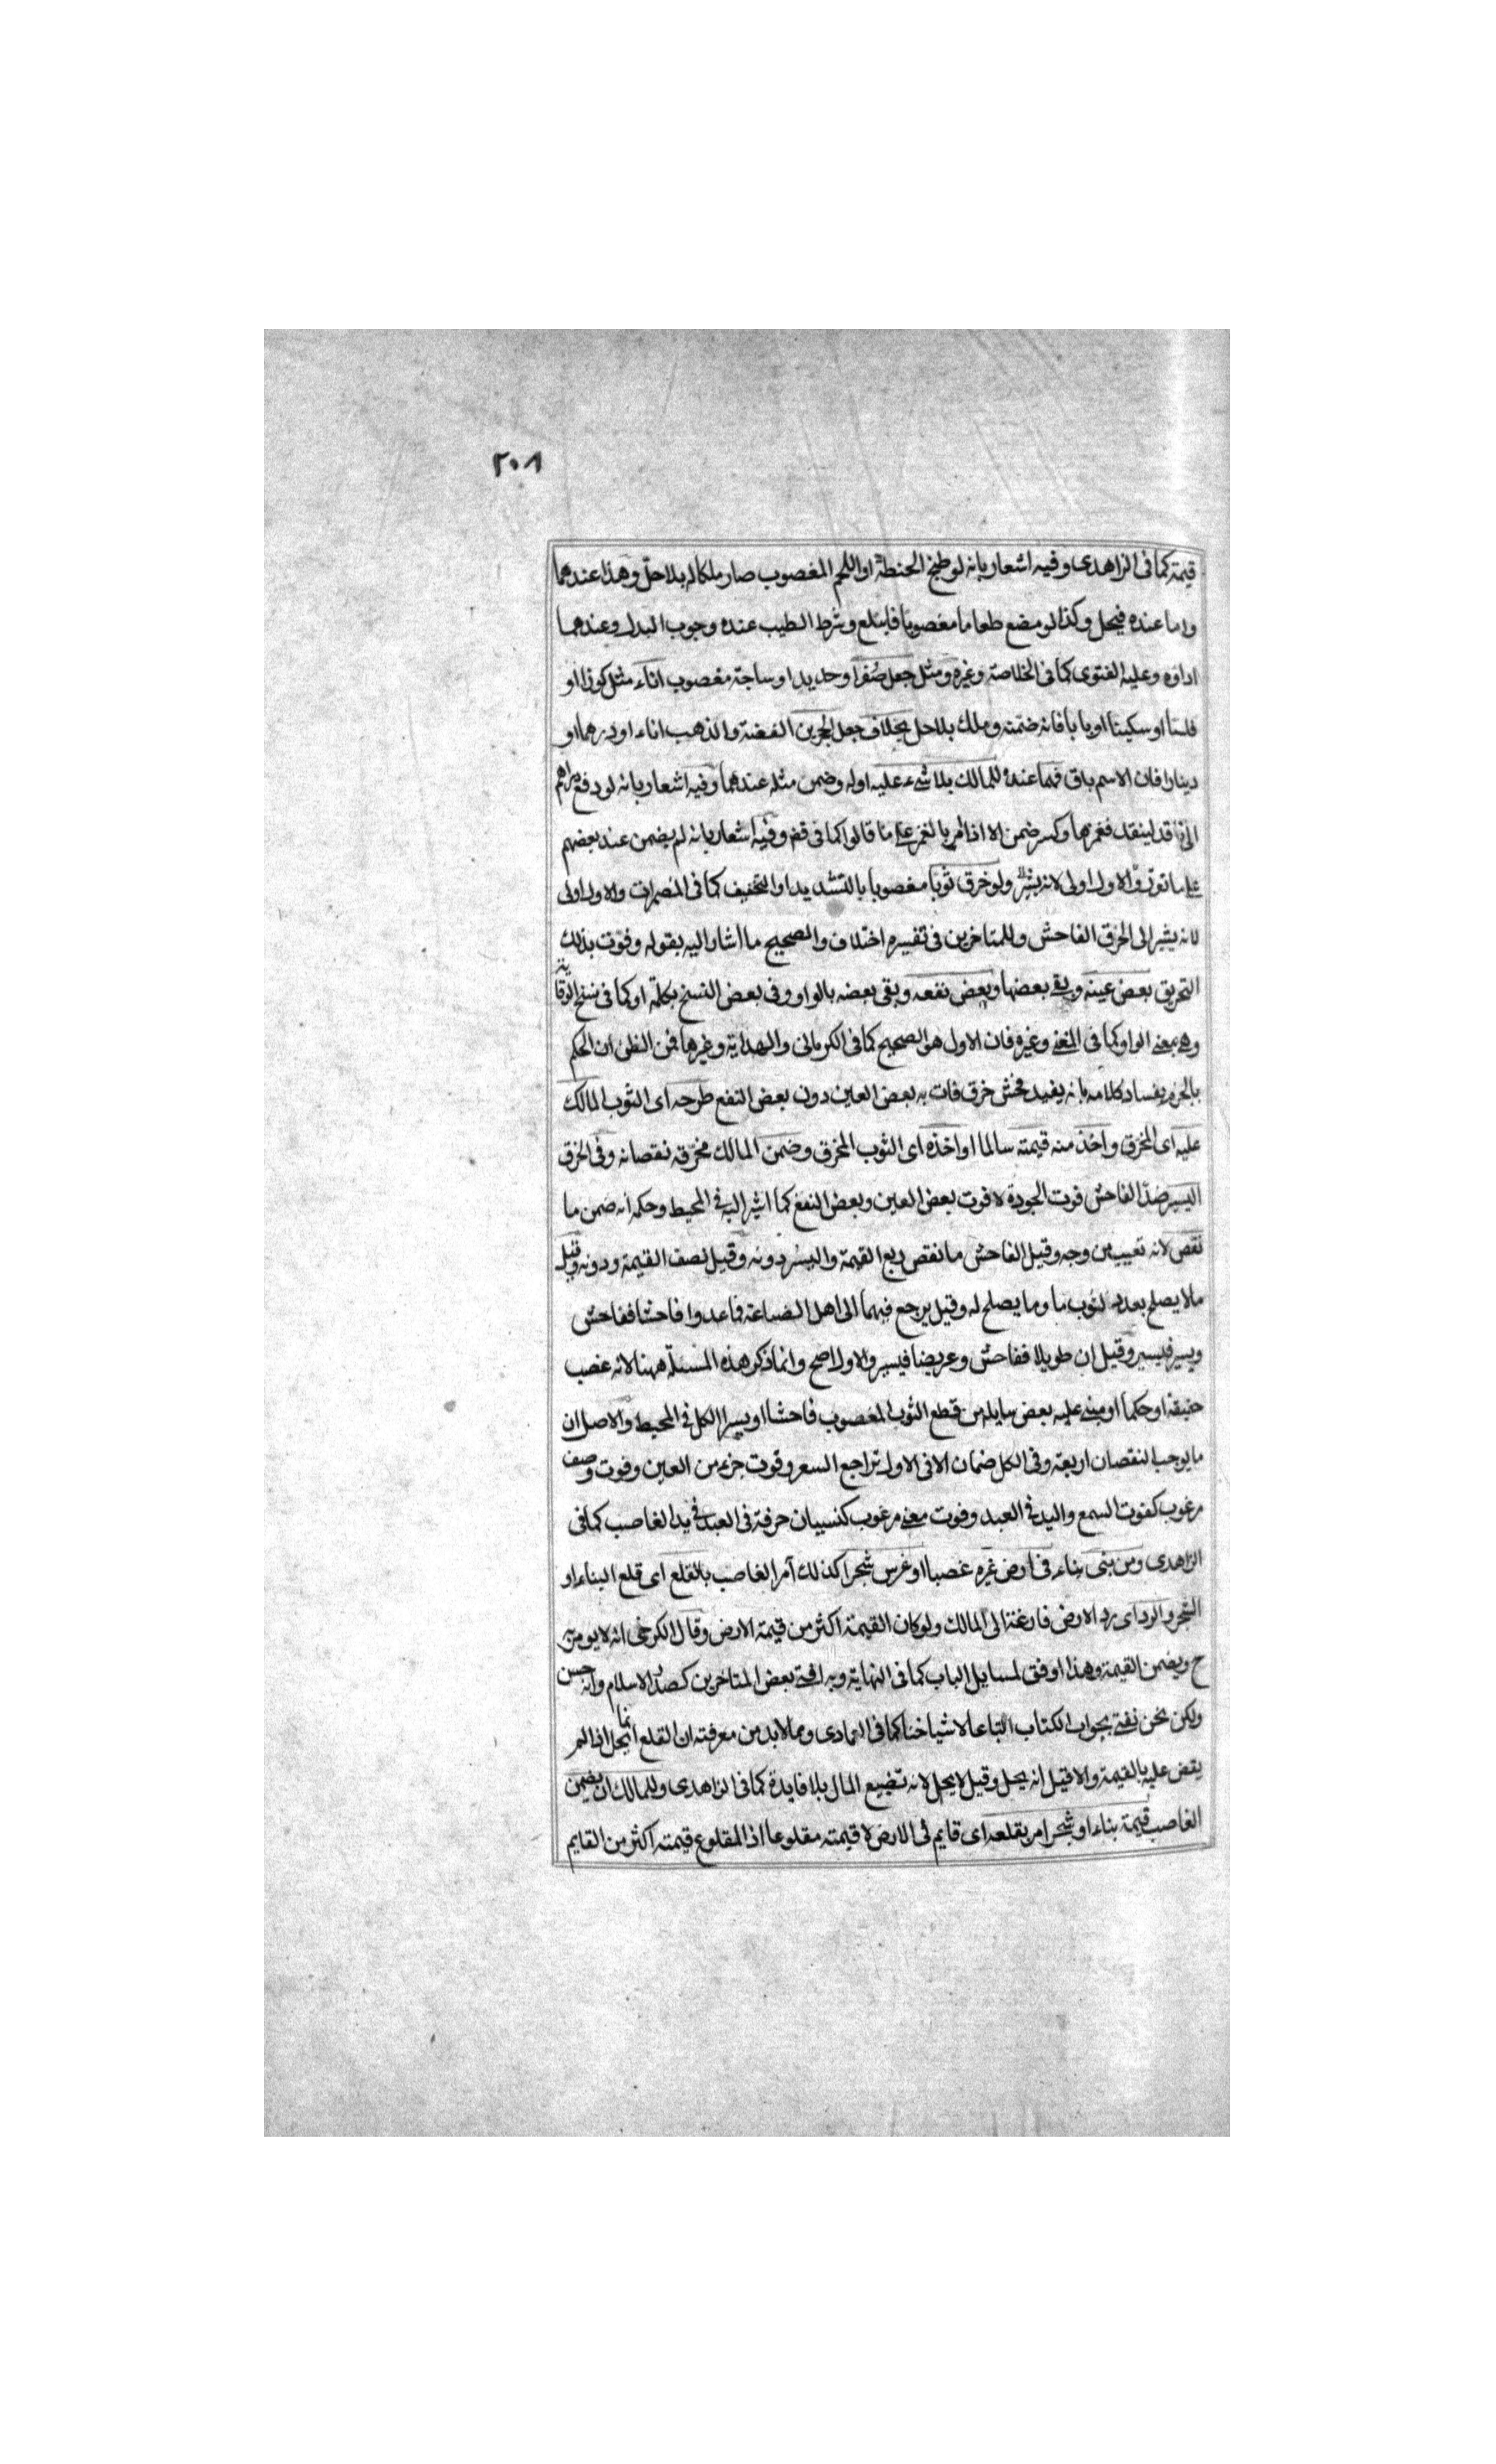 ٢٠٨
قيمة كما فى الزاهدى وفيه اشعار بانه لو طبخ الحنطة او اللحم المغصوب صار ملكا له بلا حل وهذا عندهما
واما عنده فيحل وكذا لو مضغ طعاما مغصوبا فابتلع وشرط الطيب عنده وجوب البدل وعندهما
اداؤه وعليه الفتوى كما فى الخلاصة وغيره ومثل جعل صُفرا وحديدا وساجة مغصوب اناء مثل كوزا او
فلسا او سكينا او بابا فانه ضمنه وملك بلا حل بخلاف جعل الحجرين الفضة والذهب اناء او درهما او
دينارا فان الاسم باق فهما عنده للمالك بلا شىء عليه اوله وضمن مثله عندهما وفيه اشعار بانه لو دفع دراهم
الى ناقد لينقد فغمزها وكسر ضمن الا اذا امر بالغمز على ما قالوا كما فى قض وفيه اشعار بانه لم يضمن عند بعضهم
على ما نوى والاول اولى لانه يشير ولو خرق ثوبا مغصوبا بالتشديد او التخفيف كما فى المضمرات والاول اولى
لانه يشير الى الخرق الفاحش وللمتاخرين فى تفسيره اختلاف والصحيح ما اشار اليه بقوله وفوت بذلك
التخريق بعض عينه وبقى بعضها وبعض نفعه وبقى بعضه بالواو وفى بعض النسخ بكلمة او كما فى نسخ الوقاية
وهى بمعنى الواو كما فى المغنى وغيره فان الاول هو الصحيح كما فى الكرمانى والهداية وغيرها فمن الظن ان الحكم
بالجزم بفساد كلامه بانه يفيد فحش خرق فات به بعض العين دون بعض النفع طرحه اى الثوب المالك
عليه اى المخرق واخذ منه قيمته سالما او اخذه اى الثوب المخرق وضمن المالك مخرقه نقصانه وفى الخرق
اليسير ضد الفاحش فوت الجودة لا فوت بعض العين وبعض النفع كما اشير اليه فى المحيط وحكمه انه ضمن ما
نقص لانه تعييب من وجه وقيل الفاحش ما نقص ربع القيمة واليسير دونه وقيل نصف القيمة ودونه وقيل
ما لا يصلح بعده لثوب ما وما يصلح له وقيل يرجع فيهما الى اهل الصناعة فما عدوا فاحشا ففاحش
ويسير فيسير وقيل ان طويلا ففاحش وعريضا فيسير والاول اصح وانما ذكر هذه المسئلة ههنا لانه غصب
حقيقة او حكما او مبنى عليه بعض مسايله من قطع الثوب المغصوب فاحشا او يسيرا الكل فى المحيط والاصل ان
ما يوجب النقصان اربعة وفى الكل ضمان الا فى الاول تراجع السعر وفوت جزء من العين وفوت وصف
مرغوب كفوت السمع واليد فى العبد وفوت معنى مرغوب كنسيان حرفة فى العبد فى يد الغاصب كما فى
الزاهدى ومن بنى بناء فى ارض غيره غصبا او غرس شجرا كذلك أمر الغاصب بالقلع اى قلع البناء او
الشجر والرد اى رد الارض فارغة الى المالك ولو كان القيمة اكثر من قيمة الارض وقال الكرخى انه لا يومر
ح ويضمن القيمة وهذا اوفق لمسايل الباب كما فى النهاية وبه افتى بعض المتاخرين كصدر الاسلام وانه حسن
ولكن نحن نفتى بجواب الكتاب اتباعا لاشياخنا كما فى العمادى ومما لا بد من معرفته ان القلع انما يحل اذا لم
يقض عليه بالقيمة والا قيل انه يحل وقيل لا يحل لانه تضييع المال بلا فايدة كما فى الزاهدى وللمالك ان يضمن
الغاصب قيمة بناء او شجر امر بقلعه اى قايم فى الارض لا قيمته مقلوعا اذ المقلوع قيمته اكثر من القايم